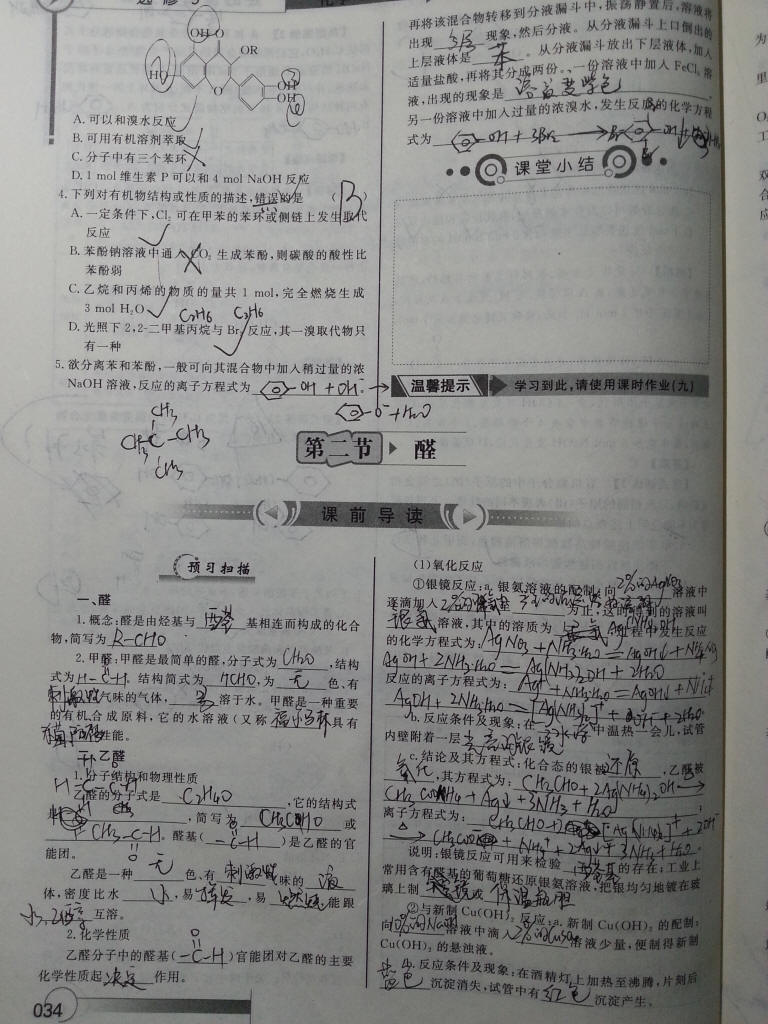 OH O
OR
HO
O
OH
OH
A. 可以和溴水反应
B. 可用有机溶剂萃取
C. 分子中有三个苯环
D. 1 mol 维生素 P 可以和 4 mol NaOH 反应
4. 下列对有机物结构或性质的描述,错误的是 ( B )
A. 一定条件下,Cl₂ 可在甲苯的苯环或侧链上发生取代
反应
B. 苯酚钠溶液中通入 CO₂ 生成苯酚,则碳酸的酸性比
苯酚弱
C. 乙烷和丙烯的物质的量共 1 mol,完全燃烧生成
3 mol H₂O C₂H₆ C₃H₆
D. 光照下 2,2-二甲基丙烷与 Br₂ 反应,其一溴取代物只
有一种
5. 欲分离苯和苯酚,一般可向其混合物中加入稍过量的浓
NaOH 溶液,反应的离子方程式为 OH + OH⁻ →
O⁻ + H₂O
CH₃
CH₃ C CH₃
CH₃
再将该混合物转移到分液漏斗中,振荡静置后,溶液将
出现 分层 现象,然后分液。从分液漏斗上口倒出的
上层液体是 苯 。从分液漏斗放出下层液体,加入
适量盐酸,再将其分成两份。一份溶液中加入 FeCl₃ 溶
液,出现的现象是 溶液变紫色
另一份溶液中加入过量的浓溴水,发生反应的化学方程
式为 OH + 3Br₂ → Br OH
课堂小结
温馨提示 学习到此,请使用课时作业(九)
第二节 醛
课前导读
预习扫描
一、醛
1. 概念:醛是由烃基与 醛基 基相连而构成的化合
物,简写为 R-CHO
2. 甲醛:甲醛是最简单的醛,分子式为 CH₂O ,结构
式为 H-C-H 。结构简式为 HCHO ,为 无 色、有
刺激性 气味的气体, 易 溶于水。甲醛是一种重要
的有机合成原料,它的水溶液(又称 福尔马林 具有
性能。
二、乙醛
1. 分子结构和物理性质
乙醛的分子式是 C₂H₄O ,它的结构式
,简写为 CH₃CHO 或
CH₃-C-H 。醛基( -C-H )是乙醛的官
能团。
乙醛是一种 无 色、有 刺激性 味的 液
体,密度比水 小 ,易 挥发 ,易 燃烧 ,能跟
水、乙醇 互溶。
2. 化学性质
乙醛分子中的醛基( -C-H )官能团对乙醛的主要
化学性质起 决定 作用。
034
(1)氧化反应
①银镜反应:a. 银氨溶液的配制:向 2%的AgNO₃ 溶液中
逐滴加入 2%的 为止,这时得到的溶液叫
银氨 溶液,其中的溶质为 过程中发生反应
的化学方程式为: AgNO₃ + NH₃·H₂O = AgOH↓ + NH₄NO₃
AgOH + 2NH₃·H₂O = Ag(NH₃)₂OH + 2H₂O
反应的离子方程式为: Ag⁺ + NH₃·H₂O = AgOH↓ + NH₄⁺
AgOH + 2NH₃·H₂O = [Ag(NH₃)₂]⁺ + OH⁻ + 2H₂O
b. 反应条件及现象:在 水浴 中温热一会儿,试管
内壁附着一层 光亮的银镜
c. 结论及其方程式:化合态的银被 还原 ,乙醛被
氧化 ,其方程式为: CH₃CHO + 2Ag(NH₃)₂OH →
CH₃COONH₄ + Ag↓ + 3NH₃ + H₂O
离子方程式为: CH₃CHO + 2[Ag(NH₃)₂]⁺ + 2OH⁻
→ CH₃COO + NH₄⁺ + 2Ag↓ + 3NH₃ + H₂O
说明:银镜反应可用来检验 醛基 的存在;工业上
常用含有醛基的葡萄糖还原银氨溶液,把银均匀地镀在玻
璃上制 或 保温瓶胆
②与新制 Cu(OH)₂ 反应:a. 新制 Cu(OH)₂ 的配制:
向 10%的NaOH 溶液中滴入 2%的CuSO₄ 溶液少量,便制得新制
Cu(OH)₂ 的悬浊液。
b. 反应条件及现象:在酒精灯上加热至沸腾,片刻后
蓝色 沉淀消失,试管中有 红色 沉淀产生。